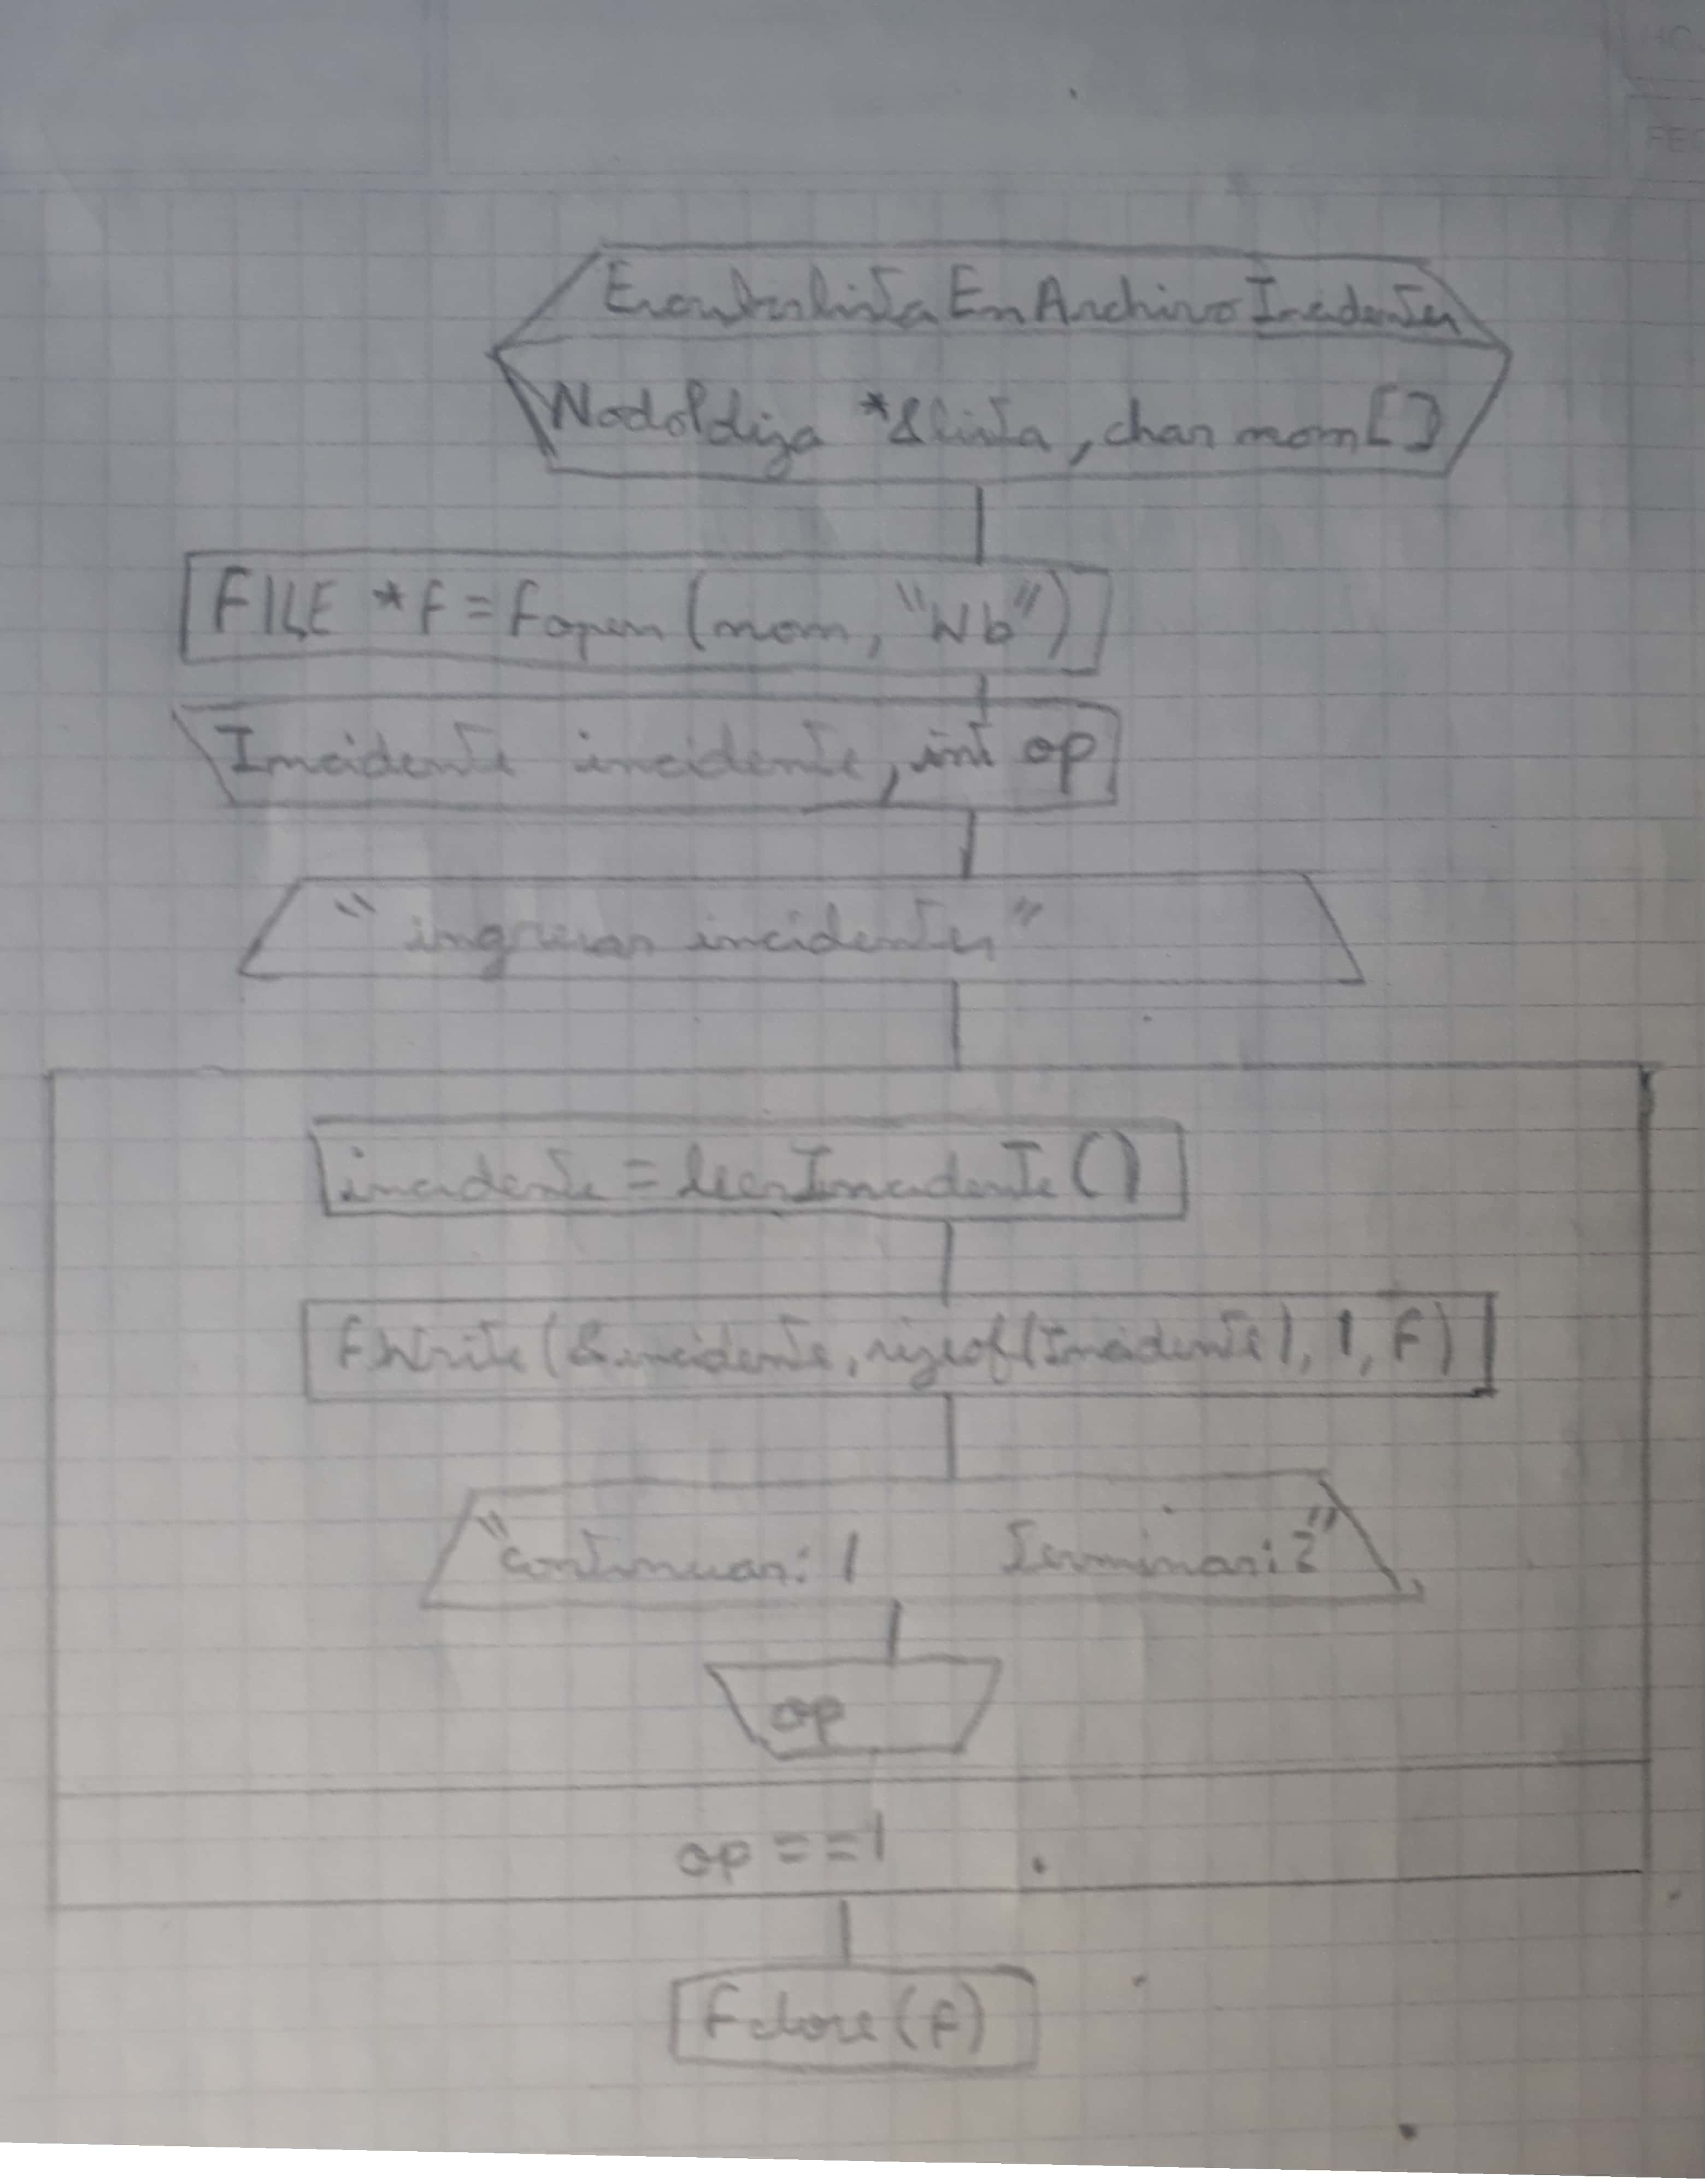 EscribirListaEnArchivoIncidentes
NodoPoliza *&lista, char nom[]
FILE *F = Fopen(nom, "Wb")
Incidente incidente, int op
"ingresar incidentes"
incidente = leerIncidente()
FWrite(&incidente, sizeof(Incidente), 1, F)
"continuar: 1 terminar: 2"
op
op == 1
Fclose(F)